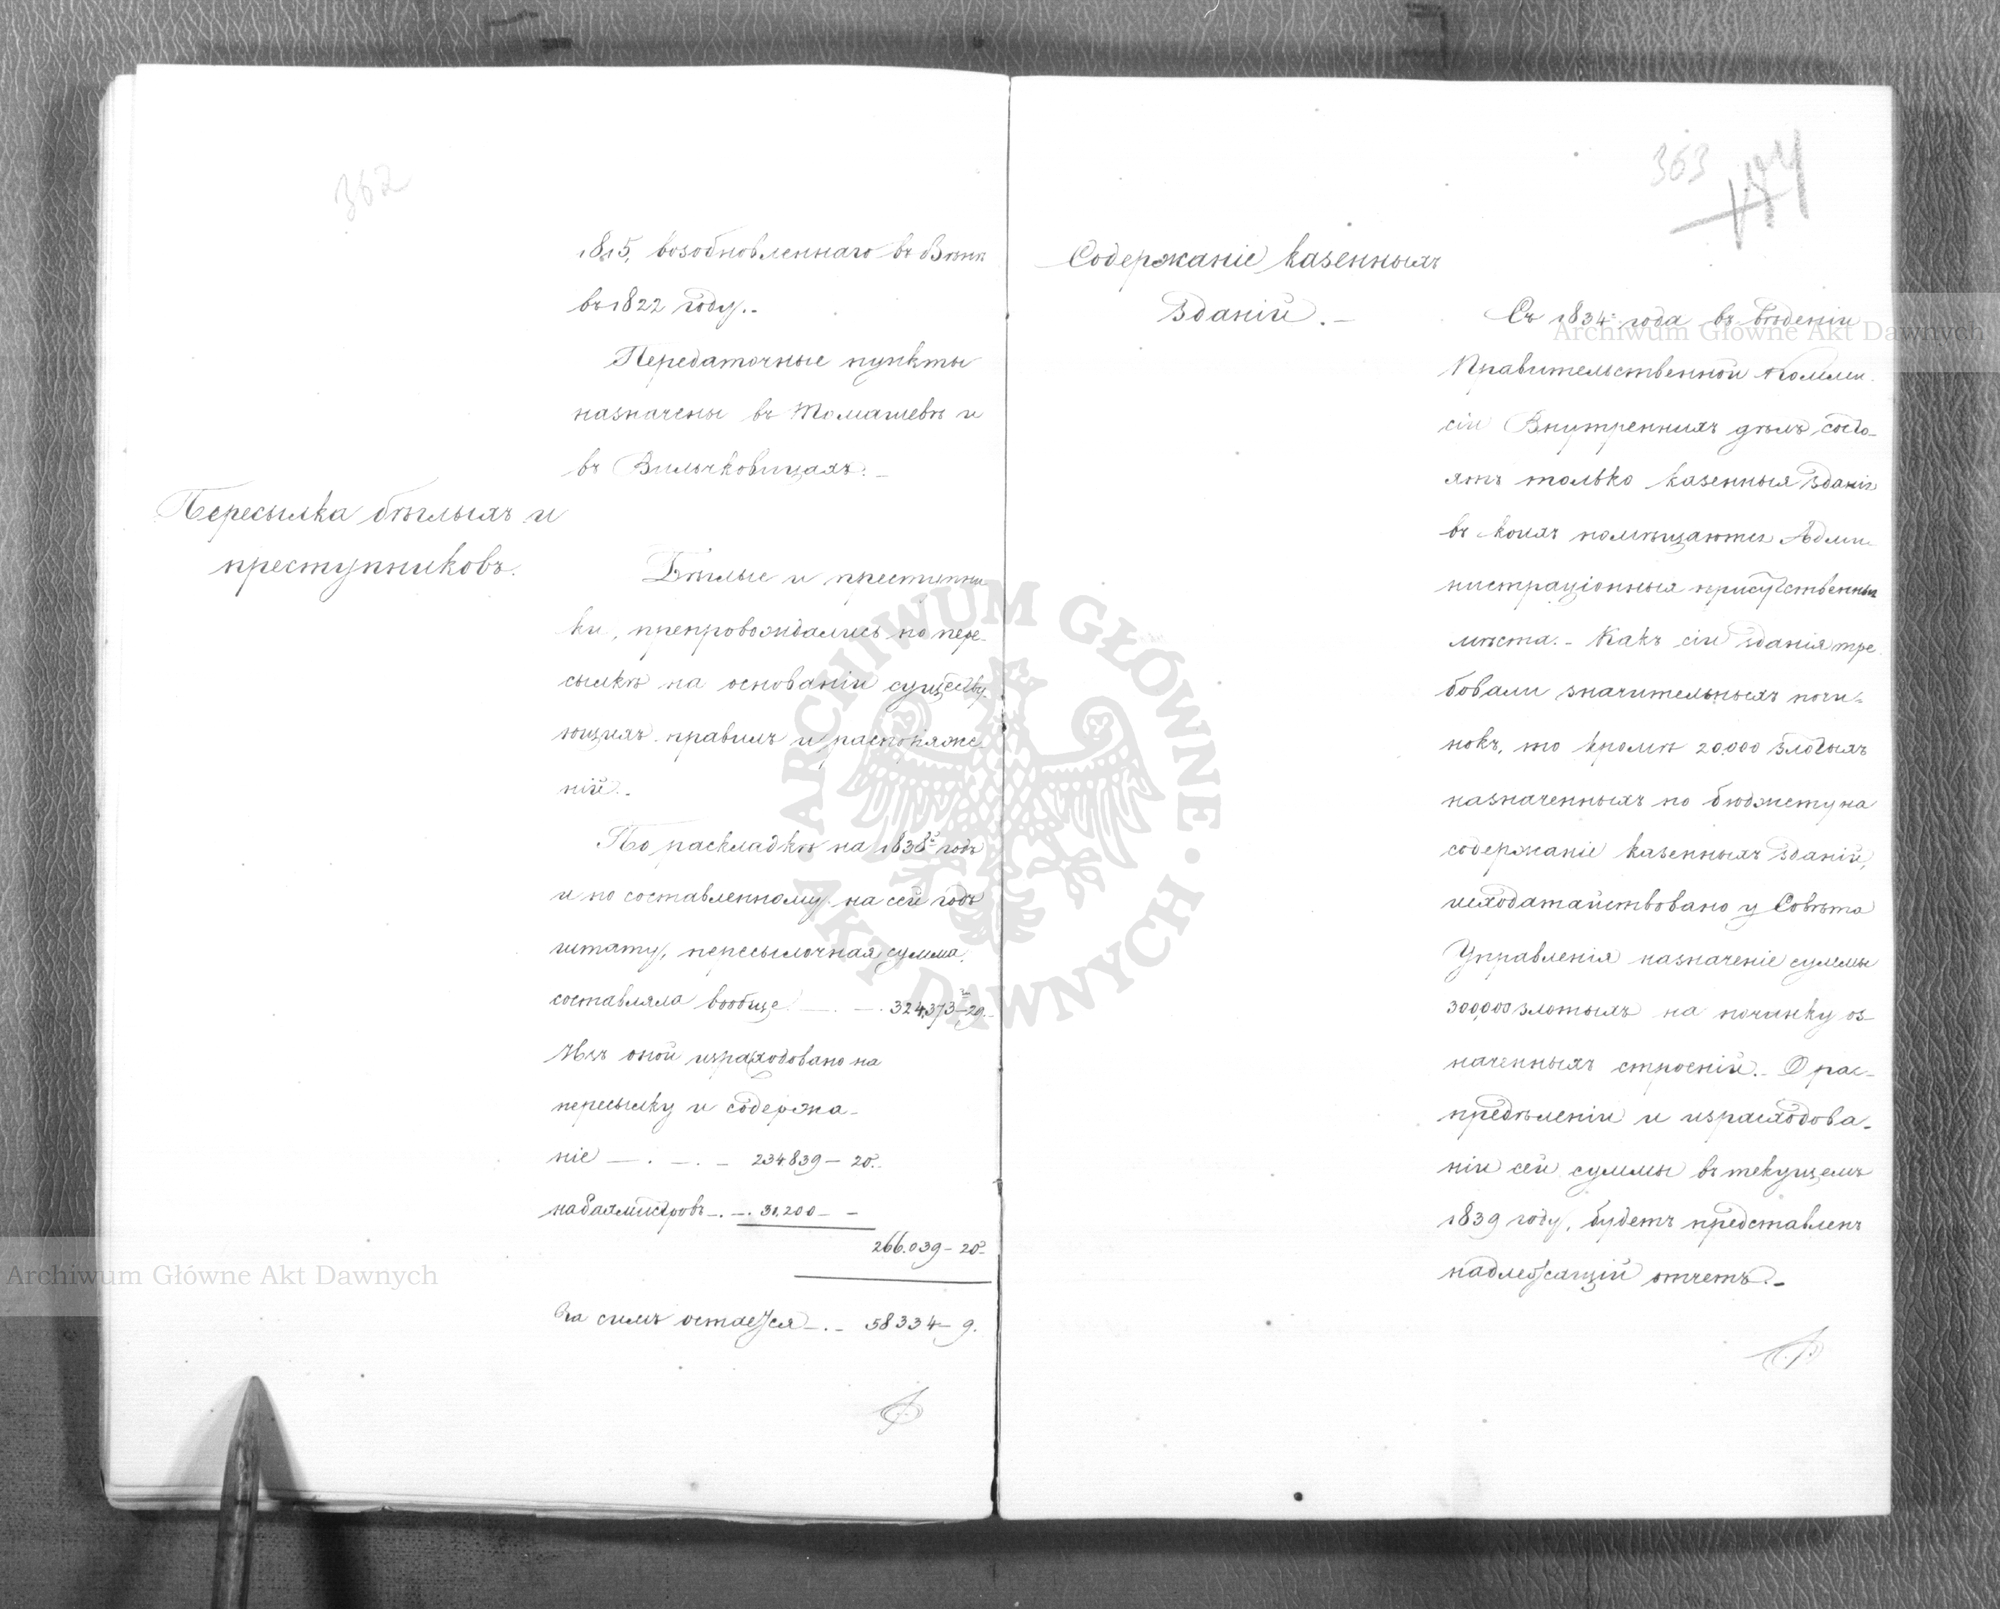 362
1815, возобновленнаго въ Вѣнѣ
въ 1822 году.-
Передаточные пункты
назначены въ Томашевѣ и
въ Вильчковицахъ.-
Пересылка бѣглыхъ и
преступниковъ.
Бѣглые и преступни
ки, препровождались по пере-
сылкѣ на основаніи существу-
ющихъ правилъ и распоряже-
ній.-
По раскладкѣ на 1838й годъ
и по составленному на сей годъ
штату, пересылочная сумма
составляла вообще — . — . 324,373-29.
Изъ оной израсходовано на
пересылку и содержа-
ніе — . — . — 234839 — 20.
на баямистровъ — . — . 31,200 — —
266.039 — 20.
За симъ остается — . — 58334 — 9.
363
174
Содержаніе казенныхъ
зданій.—
Съ 1834. года въ вѣденіи
Правительственной Коммис
сіи Внутреннихъ дѣлъ состо-
ятъ только казенныя зданія
въ коихъ помѣщаются Адми-
нистраціонныя присутственныя
мѣста.- Какъ сіи зданія тре
бовали значительныхъ почи-
нокъ, то кромѣ 20,000 злотыхъ
назначенныхъ по бюджету на
содержаніе казенныхъ зданій,
исходатайствовано у Совѣта
Управленія назначеніе суммы
300,000 злотыхъ на починку оз-
наченныхъ строеній.- О рас-
предѣленіи и израсходова-
ніи сей суммы въ текущемъ
1839 году, будетъ представленъ
надлежащій отчетъ.-
Archiwum Główne Akt Dawnych
Archiwum Główne Akt Dawnych
ARCHIWUM GŁÓWNE AKT DAWNYCH